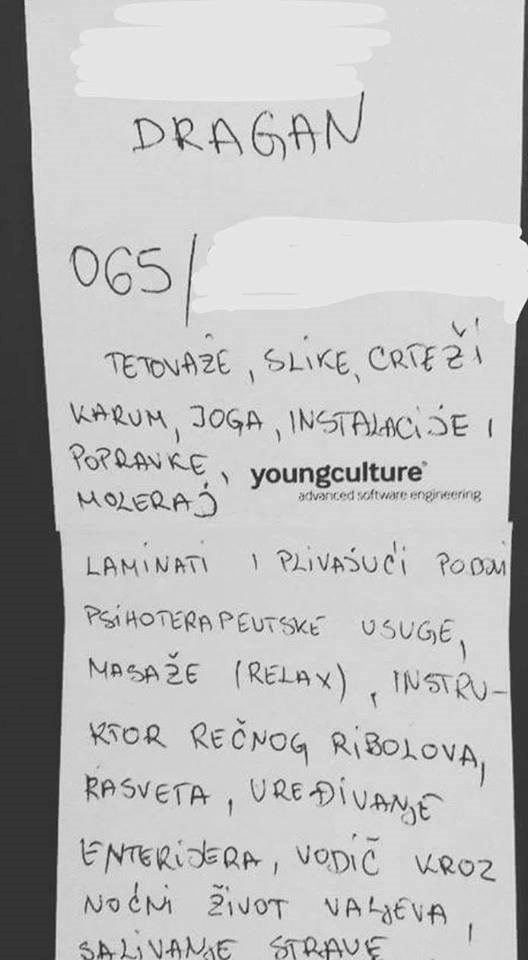 DRAGAN
065/
TETOVAŽE, SLIKE, CRTEŽI
KARUM, JOGA, INSTALACIJE I
POPRAVKE,
youngculture
advanced software engineering
MOLERAJ
LAMINATI I PLIVAJUĆI PODOVI
PSIHOTERAPEUTSKE USUGE,
MASAŽE (RELAX), INSTRU-
KTOR REČNOG RIBOLOVA,
RASVETA, UREĐIVANJE
ENTERIJERA, VODIČ KROZ
NOĆNI ŽIVOT VALJEVA,
SALIVANJE STRAVE